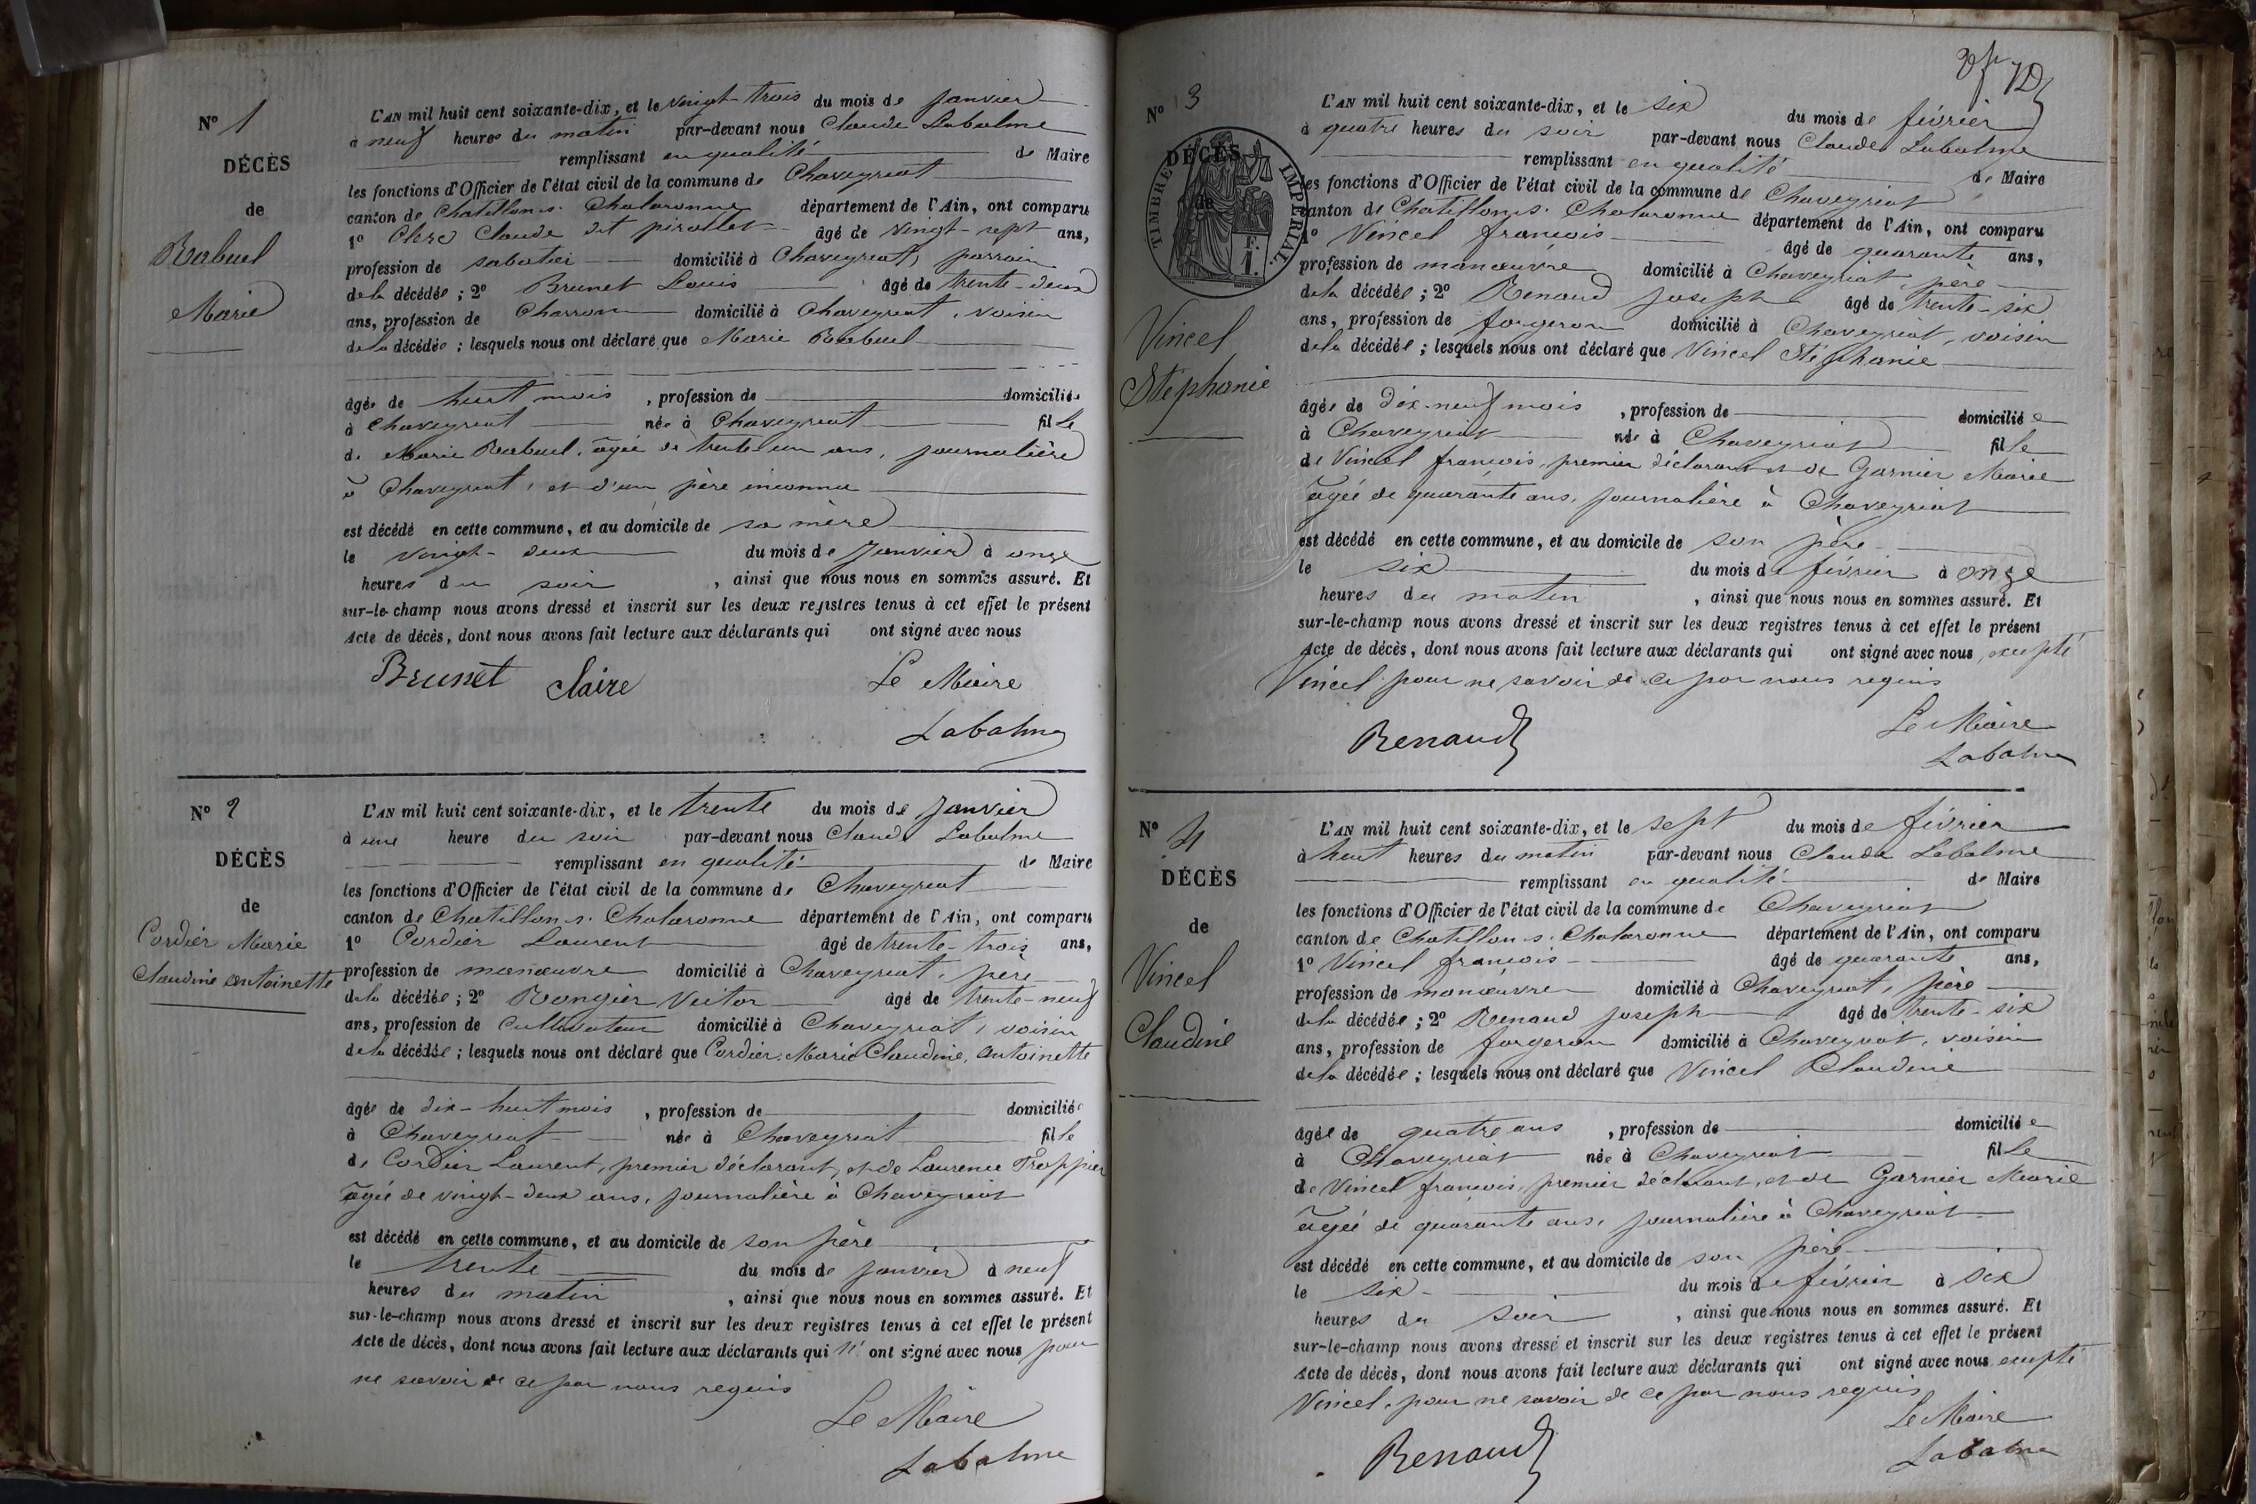 Nº 1
DÉCÈS
de
Rabuel
Marie
L'AN mil huit cent soixante-dix, et le vingt-trois du mois de janvier
à neuf heures du matin par-devant nous Claude Labalme
remplissant en qualité de Maire
les fonctions d'Officier de l'état civil de la commune de Chaveyriat
canton de Chatillon s. Chalaronne département de l'Ain, ont comparu
1º Clerc Claude dit pirollet âgé de vingt-sept ans,
profession de sabotier domicilié à Chaveyriat, parrain
de la décédée ; 2º Brunet Louis âgé de trente-deux
ans, profession de Charron domicilié à Chaveyriat, voisin
de la décédée ; lesquels nous ont déclaré que Marie Rabuel
âgée de huit mois , profession de domiciliée
à Chaveyriat née à Chaveyriat fille
de Marie Rabuel, âgée de trente un ans, journalière
à Chaveyriat, et d'un père inconnu
est décédé en cette commune, et au domicile de sa mère
le vingt-deux du mois de Janvier à onze
heures du soir , ainsi que nous nous en sommes assuré. Et
sur-le-champ nous avons dressé et inscrit sur les deux registres tenus à cet effet le présent
Acte de décès, dont nous avons fait lecture aux déclarants qui ont signé avec nous
Brunet Claire Le Maire
Labalme
Nº 2
DÉCÈS
de
Cordier Marie
Claudine Antoinette
L'AN mil huit cent soixante-dix, et le trente du mois de Janvier
à une heure du soir par-devant nous Claude Labalme
remplissant en qualité de Maire
les fonctions d'Officier de l'état civil de la commune de Chaveyriat
canton de Chatillon s. Chalaronne département de l'Ain, ont comparu
1º Cordier Laurent âgé de trente-trois ans,
profession de manœuvre domicilié à Chaveyriat, père
de la décédée ; 2º Rongier Victor âgé de trente-neuf
ans, profession de Cultivateur domicilié à Chaveyriat, voisin
de la décédée ; lesquels nous ont déclaré que Cordier Marie Claudine, Antoinette
âgée de dix-huit mois , profession de domiciliée
à Chaveyriat née à Chaveyriat fille
de Cordier Laurent, premier déclarant, et de Laurence Frappier
âgée de vingt-deux ans, journalière à Chaveyriat
est décédé en cette commune, et au domicile de son père
le trente du mois de janvier à neuf
heures du matin , ainsi que nous nous en sommes assuré. Et
sur-le-champ nous avons dressé et inscrit sur les deux registres tenus à cet effet le présent
Acte de décès, dont nous avons fait lecture aux déclarants qui n' ont signé avec nous pour
ne savoir de ce par nous requis
Le Maire
Labalme
Nº 3
DÉCÈS
de
TIMBRE IMPÉRIAL.
Vincel
Stéphanie
L'AN mil huit cent soixante-dix, et le six du mois de février
à quatre heures du soir par-devant nous Claude Labalme
remplissant en qualité de Maire
les fonctions d'Officier de l'état civil de la commune de Chaveyriat
canton de Chatillon s. Chalaronne département de l'Ain, ont comparu
1º Vincel françois âgé de quarante ans,
profession de manœuvre domicilié à Chaveyriat, père
de la décédée ; 2º Renaud joseph âgé de trente-six
ans, profession de forgeron domicilié à Chaveyriat, voisin
de la décédée ; lesquels nous ont déclaré que Vincel Stéphanie
âgée de dix-neuf mois , profession de domiciliée
à Chaveyriat née à Chaveyriat fille
de Vincel françois, premier déclarant et de Garnier Marie
âgée de quarante ans, journalière à Chaveyriat
est décédé en cette commune, et au domicile de son père
le six du mois de février à onze
heures du matin , ainsi que nous nous en sommes assuré. Et
sur-le-champ nous avons dressé et inscrit sur les deux registres tenus à cet effet le présent
Acte de décès, dont nous avons fait lecture aux déclarants qui ont signé avec nous, excepté
Vincel pour ne savoir de ce par nous requis
Renaud Le Maire
Labalme
Nº 4
DÉCÈS
de
Vincel
Claudine
L'AN mil huit cent soixante-dix, et le sept du mois de février
à huit heures du matin par-devant nous Claude Labalme
remplissant en qualité de Maire
les fonctions d'Officier de l'état civil de la commune de Chaveyriat
canton de Chatillon s. Chalaronne département de l'Ain, ont comparu
1º Vincel françois âgé de quarante ans,
profession de manœuvre domicilié à Chaveyriat, père
de la décédée ; 2º Renaud joseph âgé de trente-six
ans, profession de forgeron domicilié à Chaveyriat, voisin
de la décédée ; lesquels nous ont déclaré que Vincel Claudine
âgée de quatre ans , profession de domiciliée
à Chaveyriat née à Chaveyriat fille
de Vincel françois, premier déclarant, et de Garnier Marie
âgée de quarante ans, journalière à Chaveyriat
est décédé en cette commune, et au domicile de son père
le six du mois de février à six
heures du soir , ainsi que nous nous en sommes assuré. Et
sur-le-champ nous avons dressé et inscrit sur les deux registres tenus à cet effet le présent
Acte de décès, dont nous avons fait lecture aux déclarants qui ont signé avec nous excepté
Vincel, pour ne savoir de ce par nous requis
Renaud Le Maire
Labalme